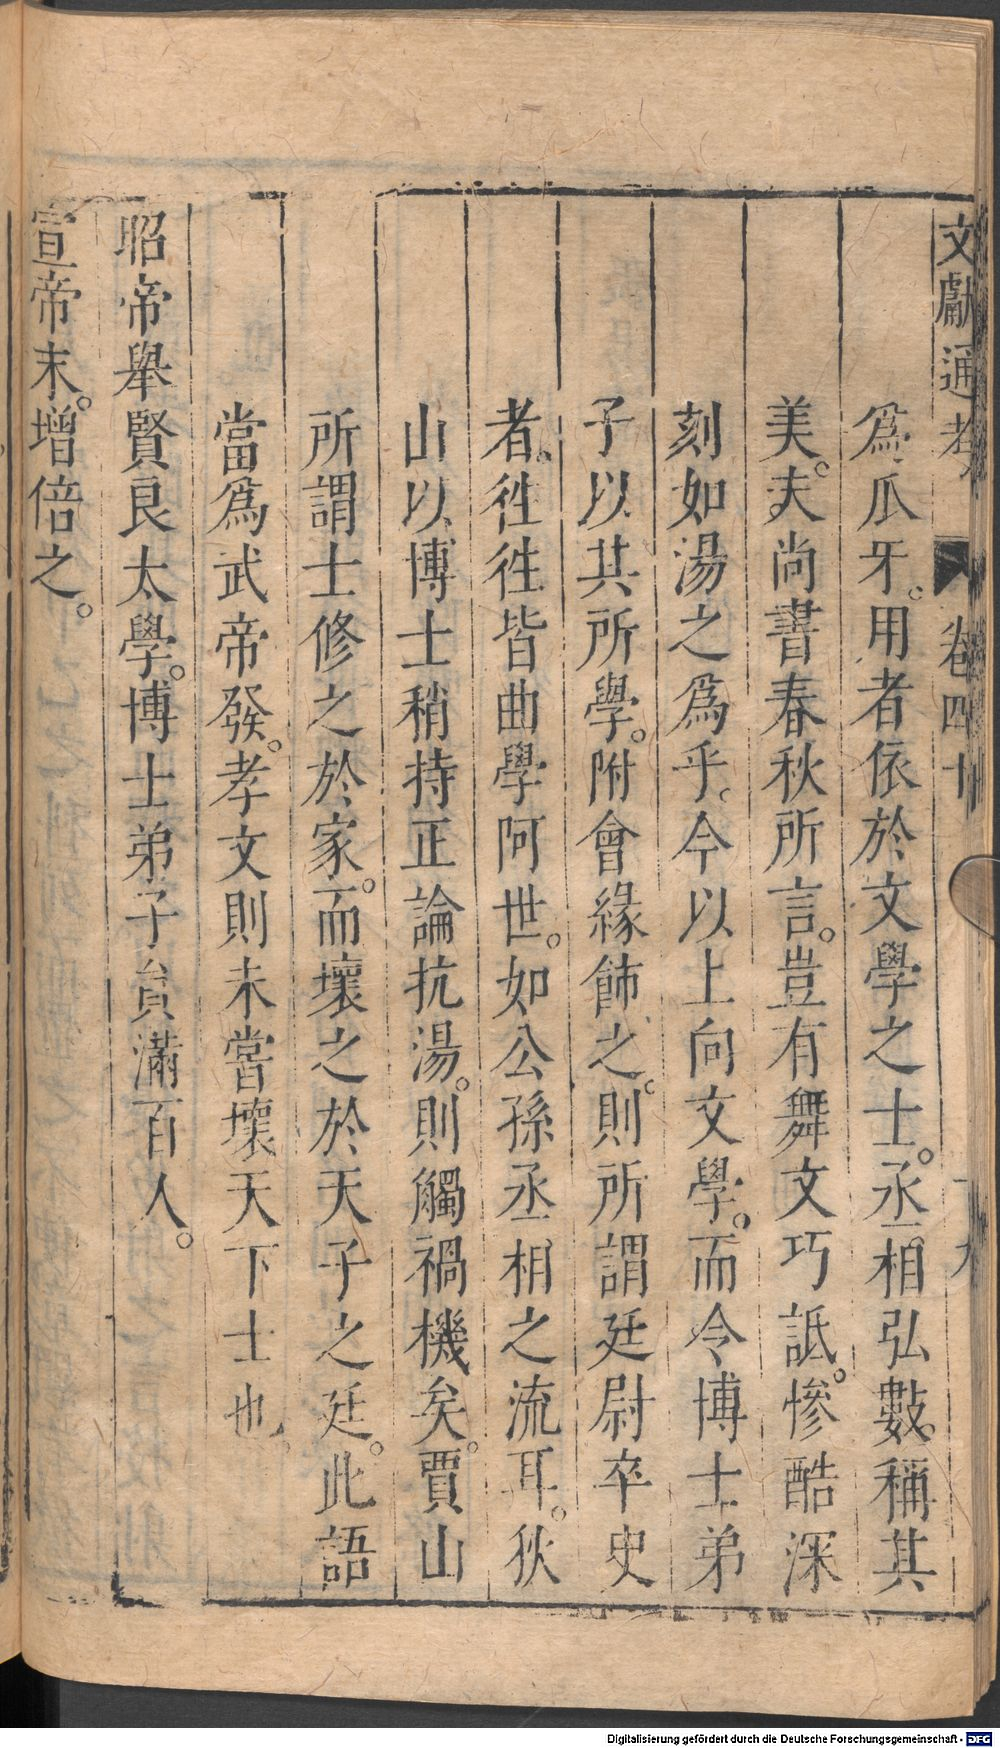 文獻通考 卷四十 十九
爲爪牙。用者依於文學之士。丞相弘數。稱其
美。夫尚書春秋所言。豈有舞文巧詆。慘酷深
刻如湯之爲乎。今以上向文學。而令博士弟
子以其所學。附會緣飾之。則所謂廷尉卒史
者。徃徃皆曲學阿世。如公孫丞相之流耳。狄
山以博士稍持正論抗湯。則觸禍機矣。賈山
所謂士修之於家。而壞之於天子之廷。此語
當爲武帝發。孝文則未嘗壞天下士也。
昭帝舉賢良太學。博士弟子貟滿百人。
宣帝末。增倍之。
Digitalisierung gefördert durch die Deutsche Forschungsgemeinschaft - DFG